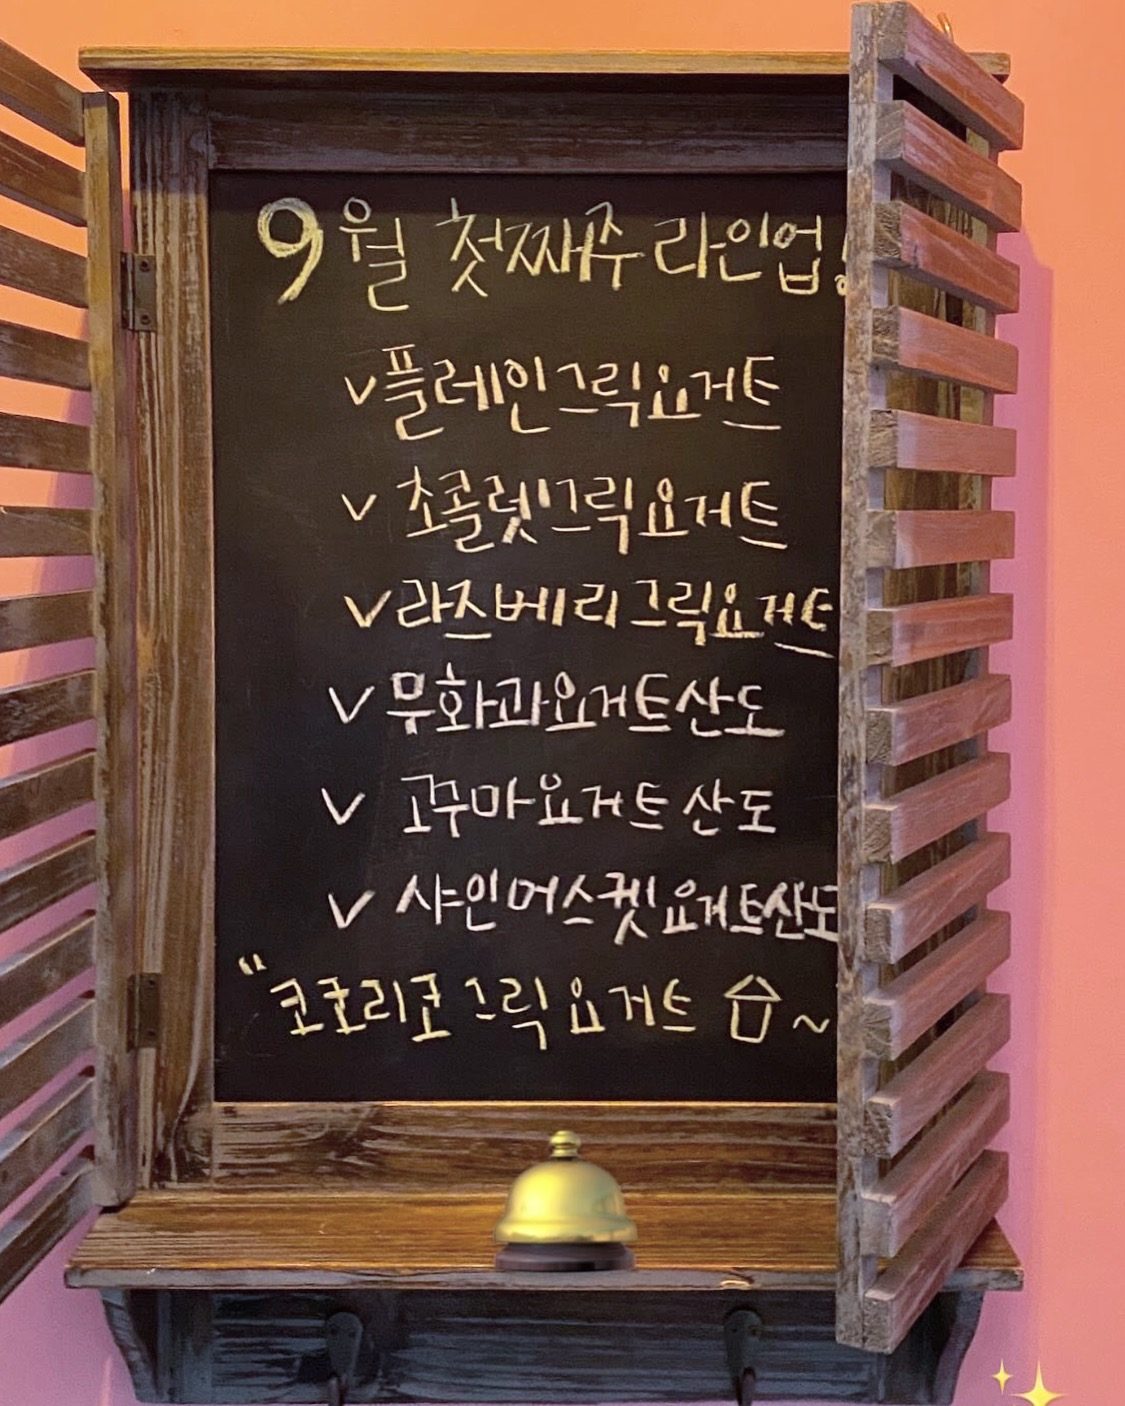 9월 첫째주 라인업!
✓플레인그릭요거트
✓초콜렛그릭요거트
✓라즈베리그릭요거트
✓무화과요거트산도
✓고구마요거트산도
✓샤인머스켓요거트산도
"코코리코 그릭요거트 ~